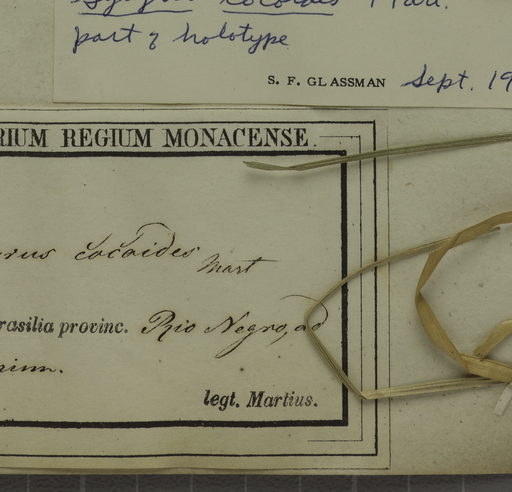 cocoides Mart.
part of holotype
S. F. GLASSMAN Sept. 19
RIUM REGIUM MONACENSE.
rus cocoides Mart
rasilia provinc. Rio Negro, ad
rium.
legt. Martius.